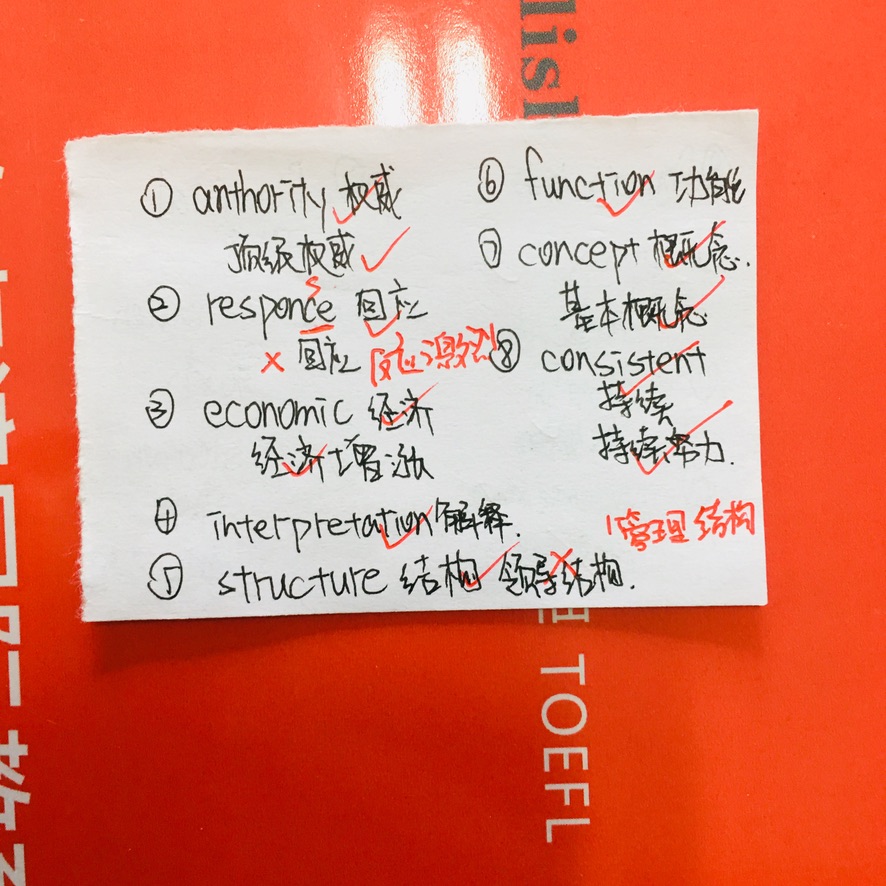 ① authority 权威
顶级权威
② responce 回应
s
× 回应 反应激烈
③ economic 经济
经济增涨
④ interpretation 解释.
⑤ structure 结构 领导结构.
⑥ function 功能
⑦ concept 概念.
基本概念
⑧ consistent
持续
持续努力.
管理结构
lish
TOEFL